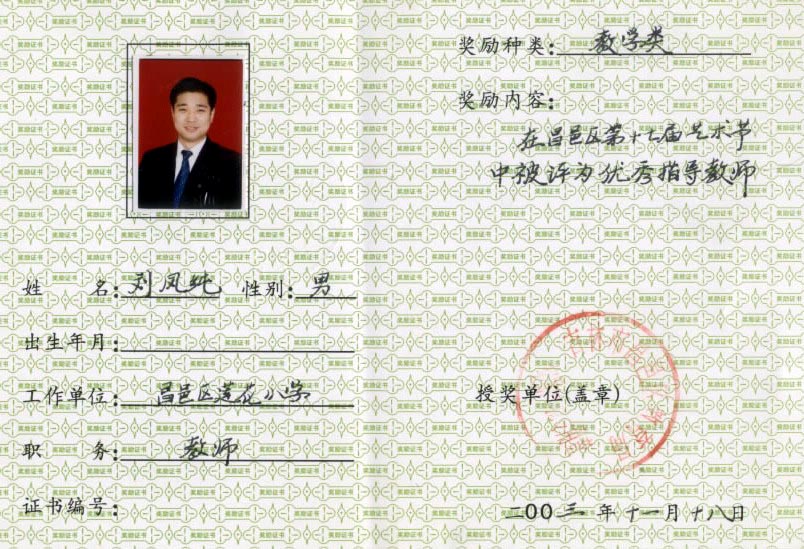 姓 名：刘凤纯 性别：男
出生年月：
工作单位：昌邑区莲花小学
职 务：教师
证书编号：
奖励种类：教学类
奖励内容：
在昌邑区第十七届艺术节
中被评为优秀指导教师
授奖单位(盖章)
二00三年十一月十八日